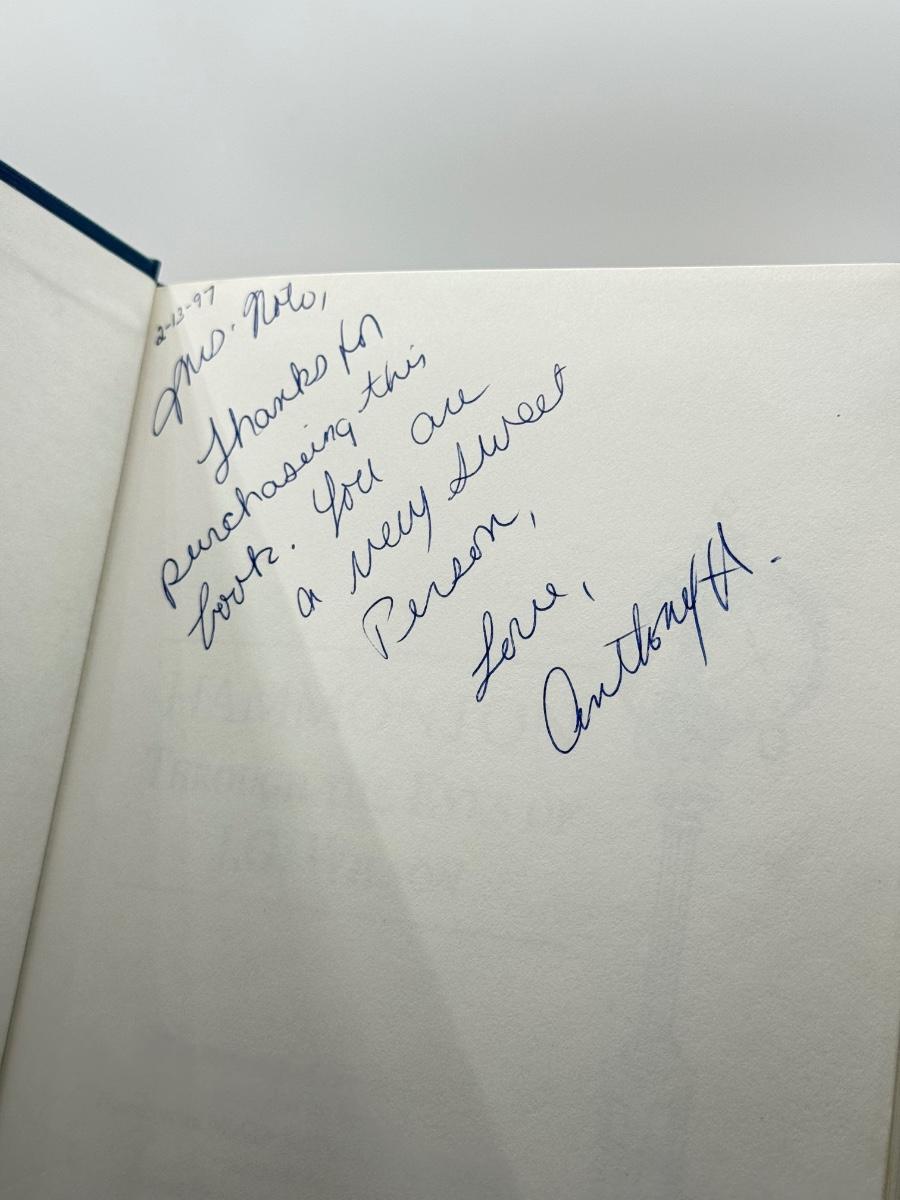 2-13-97
Mrs. Noto,
Thanks for
purchasing this
book. You are
a very sweet
Person,
Love,
Anthony H.